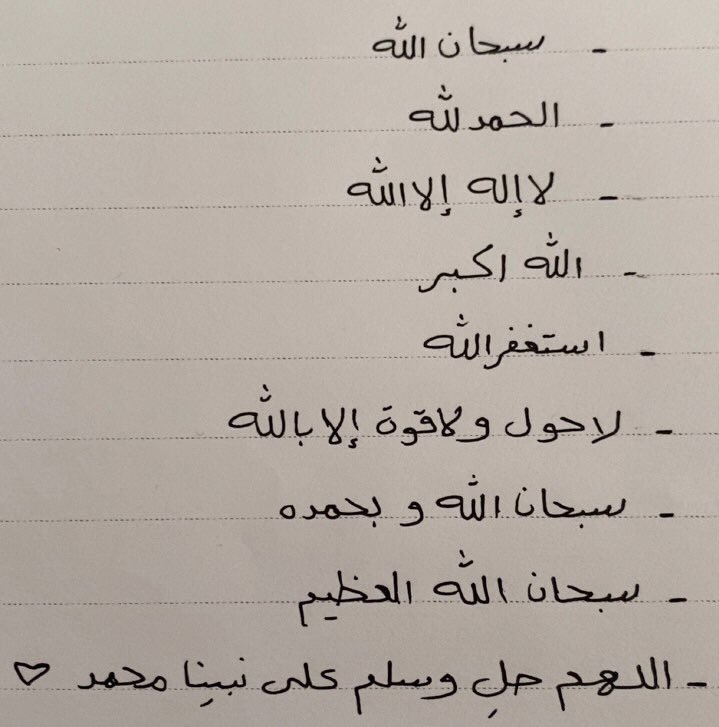 - سبحان الله
- الحمدلله
- لا إله إلا الله
- الله اكبر
- استغفرالله
- لا حول ولا قوة إلا بالله
- سبحان الله و بحمده
- سبحان الله العظيم
- اللهم صلِ وسلم على نبينا محمد ♡